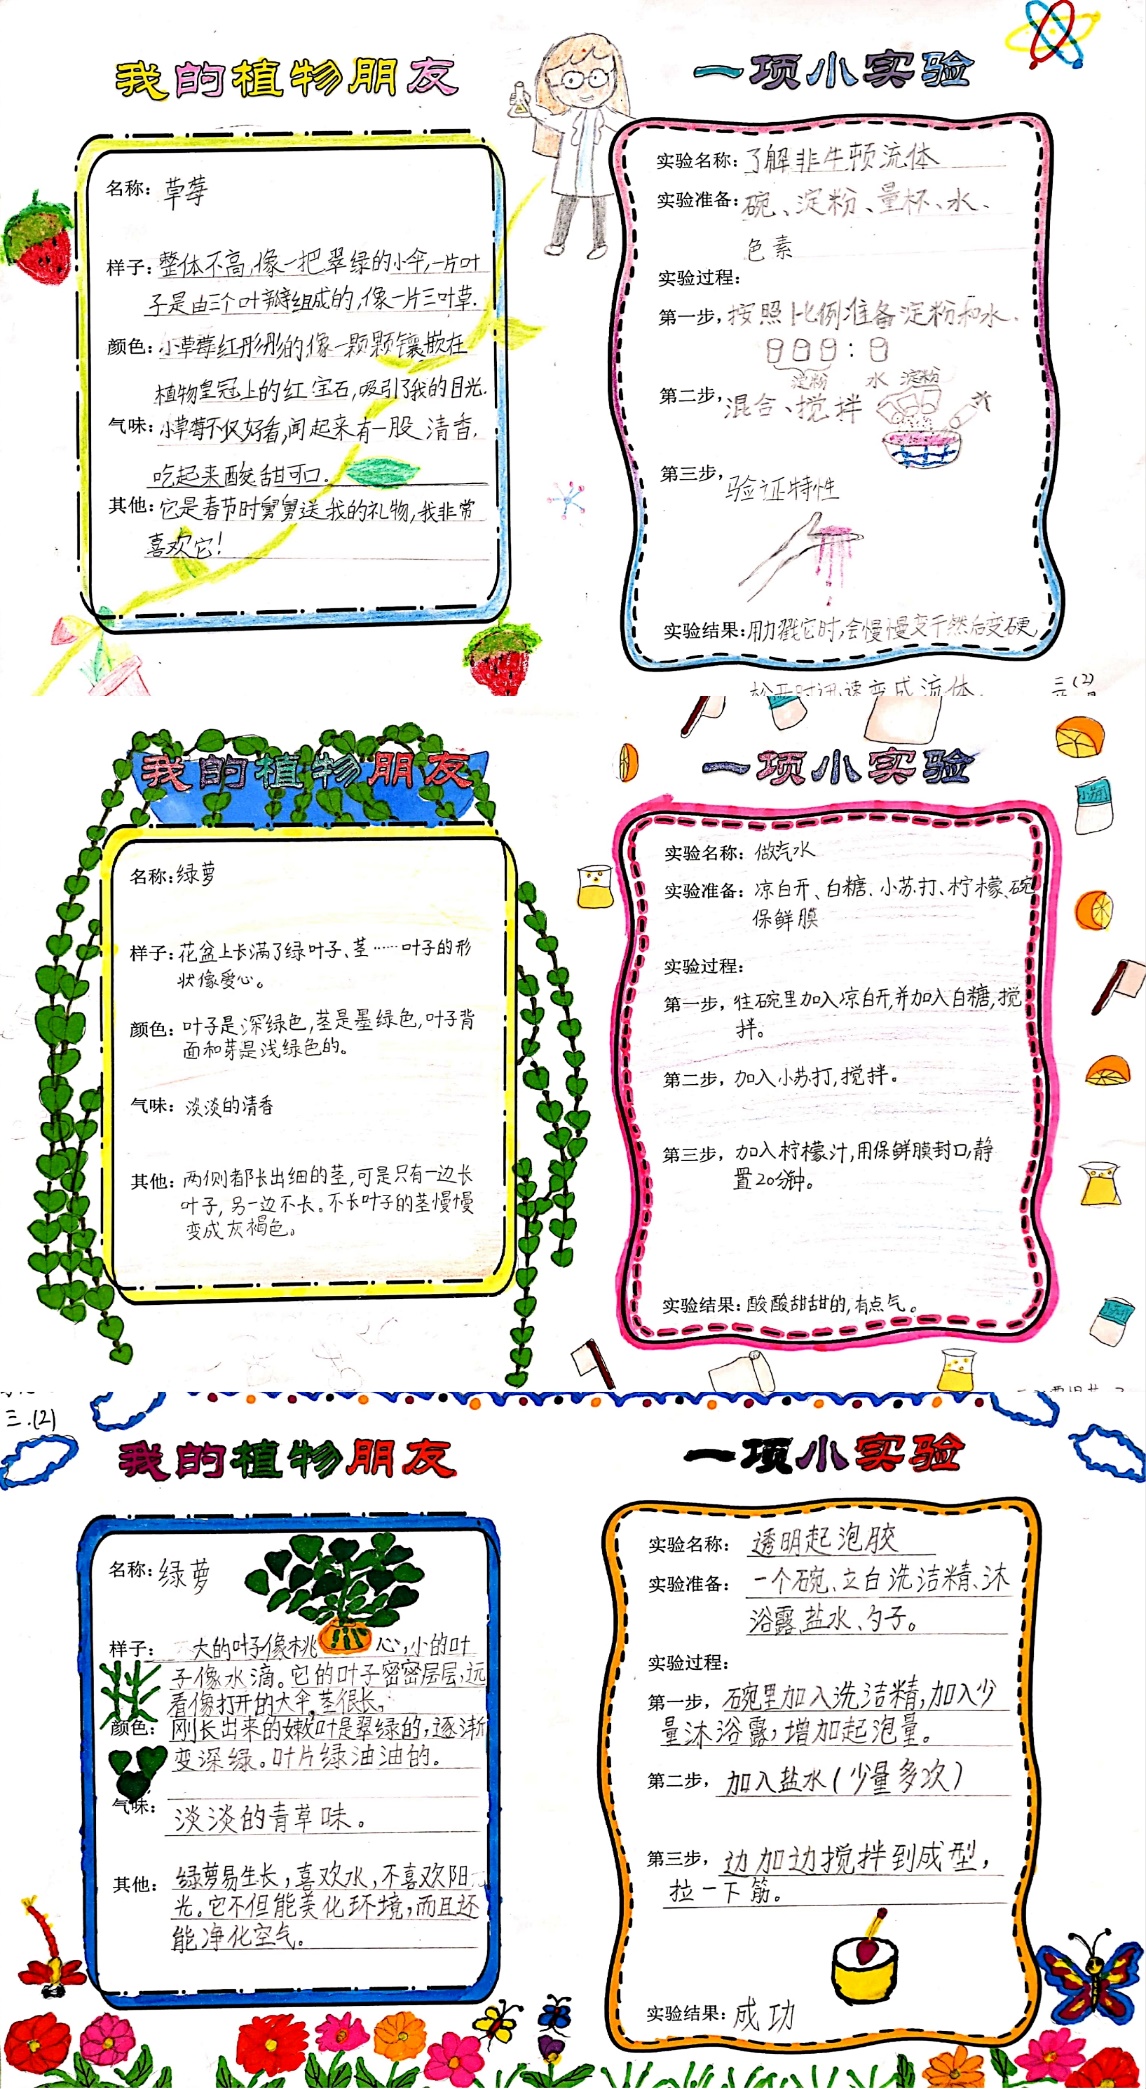 我的植物朋友
名称：草莓
样子：整体不高，像一把翠绿的小伞，一片叶
子是由三个叶瓣组成的，像一片三叶草.
颜色：小草莓红彤彤的，像一颗颗镶嵌在
植物皇冠上的红宝石，吸引了我的目光.
气味：小草莓不仅好看，闻起来有一股清香，
吃起来酸甜可口.
其他：它是春节时舅舅送我的礼物，我非常
喜欢它！
一项小实验
实验名称：了解非牛顿流体
实验准备：碗、淀粉、量杯、水、
色素
实验过程：
第一步，按照比例准备淀粉和水.
淀粉 水 淀粉
第二步，混合、搅拌
第三步，验证特性
实验结果：用力戳它时，会慢慢变干然后变硬，
松开时迅速变成流体.
三(2)
我的植物朋友
名称：绿萝
样子：花盆上长满了绿叶子、茎……叶子的形
状像爱心。
颜色：叶子是深绿色，茎是墨绿色，叶子背
面和芽是浅绿色的。
气味：淡淡的清香
其他：两侧都长出细的茎，可是只有一边长
叶子，另一边不长。不长叶子的茎慢慢
变成灰褐色。
一项小实验
小苏打
实验名称：做汽水
实验准备：凉白开、白糖、小苏打、柠檬、碗
保鲜膜
实验过程：
第一步，往碗里加入凉白开，并加入白糖，搅
拌。
第二步，加入小苏打，搅拌。
第三步，加入柠檬汁，用保鲜膜封口，静
置20分钟。
实验结果：酸酸甜甜的，有点气。
三.(2)
我的植物朋友
名称：绿萝
样子：大的叶子像桃心，小的叶
子像水滴。它的叶子密密层层，远
看像打开的大伞，茎很长。
颜色：刚长出来的嫩叶是翠绿的，逐渐
变深绿。叶片绿油油的。
气味：
淡淡的青草味。
其他：绿萝易生长，喜欢水，不喜欢阳
光。它不但能美化环境，而且还
能净化空气。
一项小实验
实验名称：透明起泡胶
实验准备：一个碗、立白洗洁精、沐
浴露、盐水、勺子。
实验过程：
第一步，碗里加入洗洁精，加入少
量沐浴露，增加起泡量。
第二步，加入盐水（少量多次）
第三步，边加边搅拌到成型，
拉一下筋。
实验结果：成功